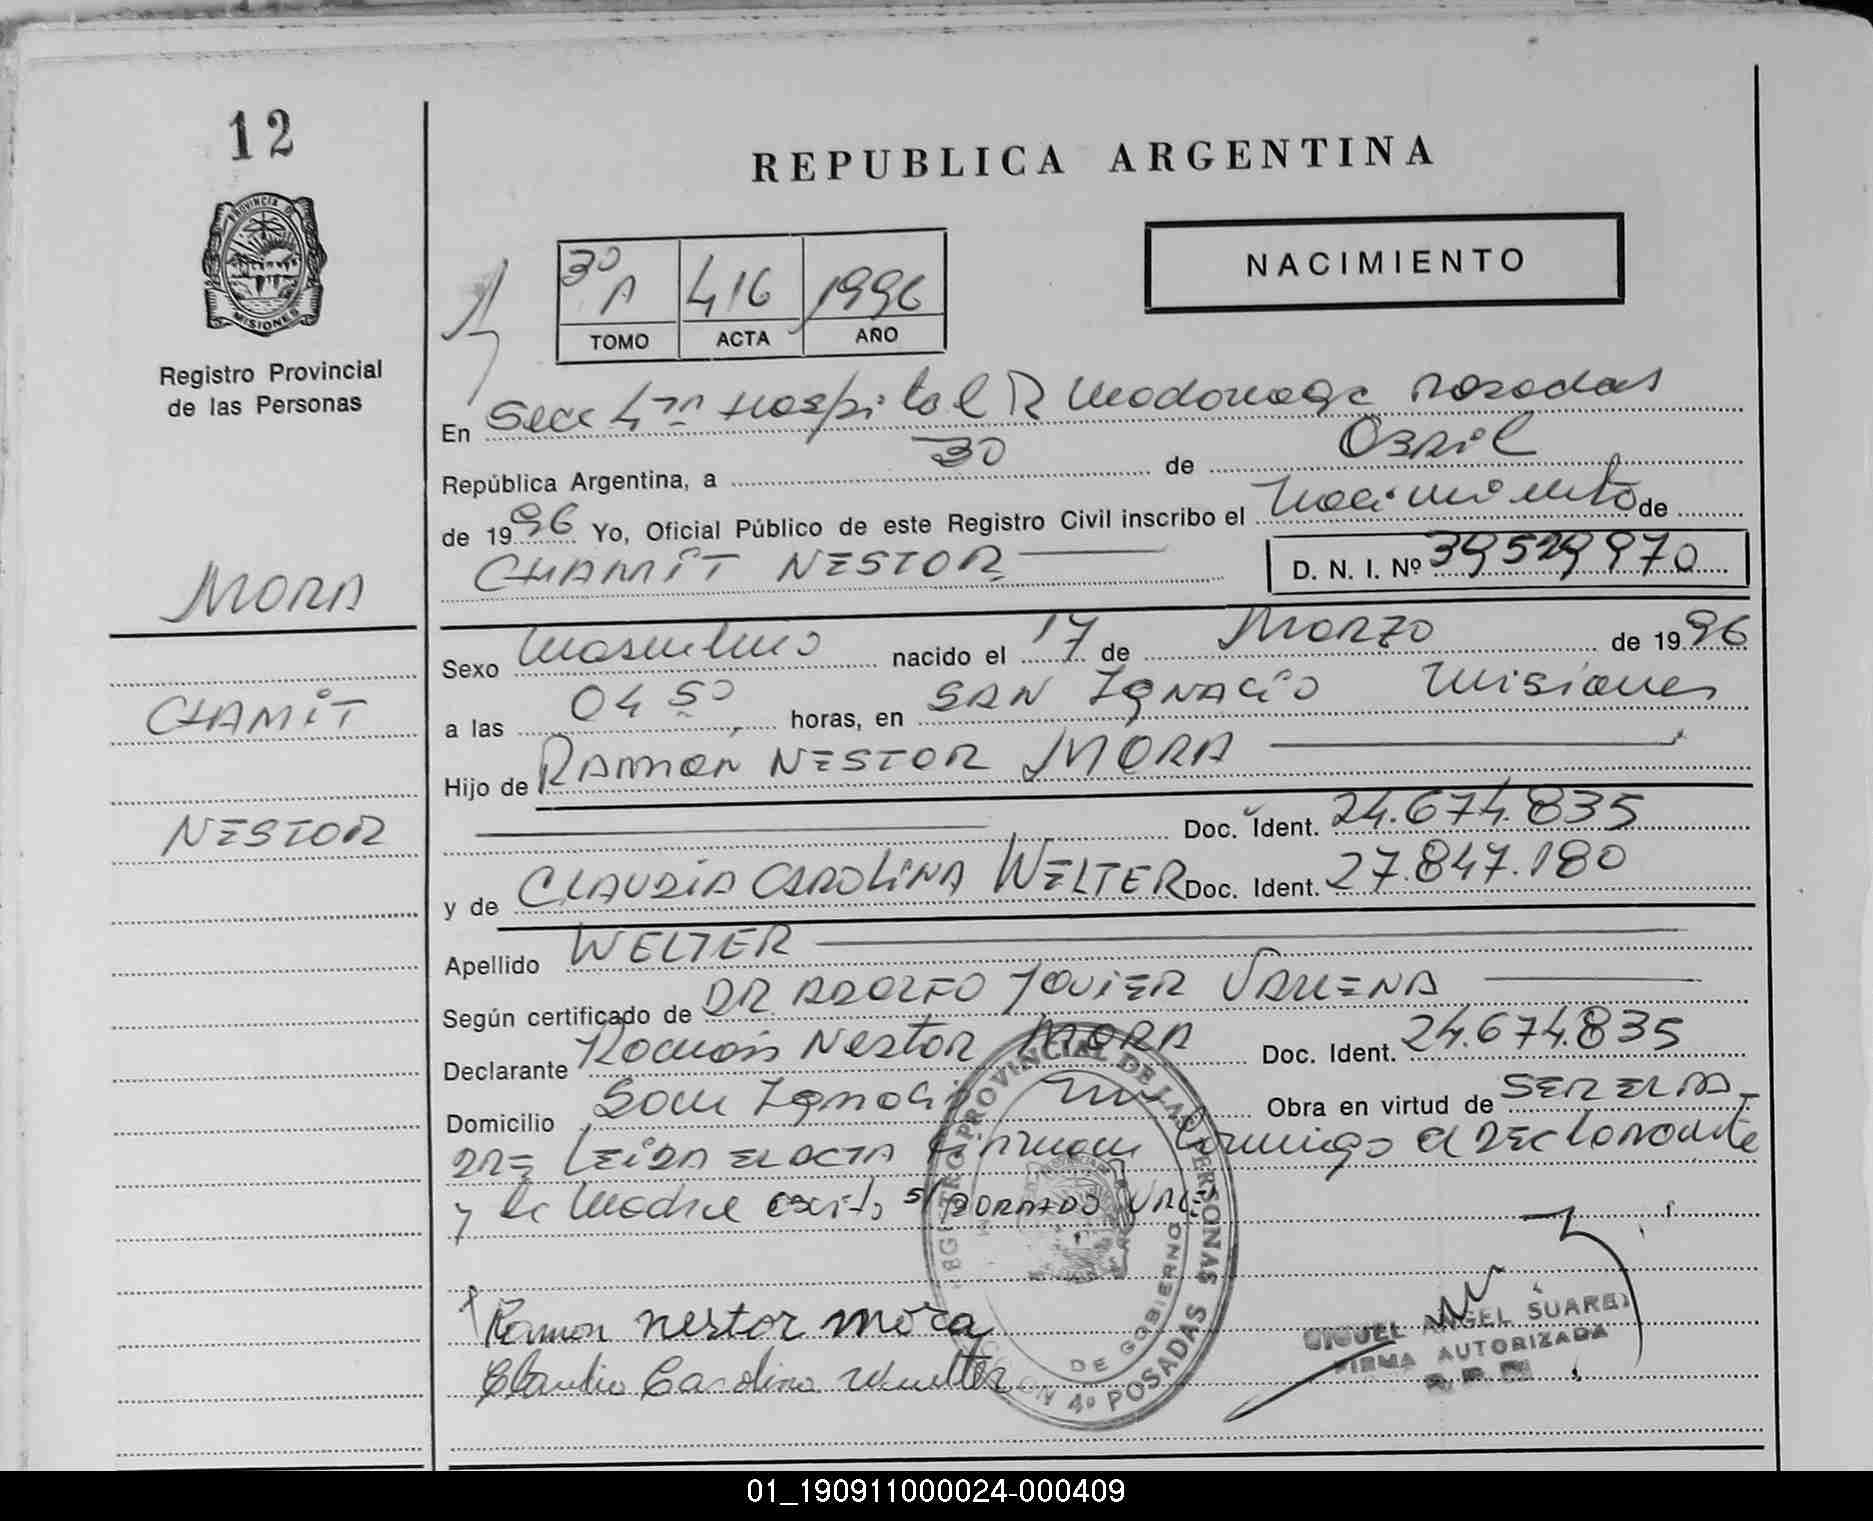 12
REPUBLICA ARGENTINA
PROVINCIA DE
MISIONES
Registro Provincial
de las Personas
NACIMIENTO
3º A 416 1996
TOMO ACTA AÑO
En Secc 4ta Hospital R Madariaga Posadas
República Argentina, a 30 de Abril
de 1996 Yo, Oficial Público de este Registro Civil inscribo el Nacimiento de
CHAMIT NESTOR D. N. I. Nº 39529970
MORA
CHAMIT
NESTOR
Sexo Masculino nacido el 17 de Marzo de 1996
a las 04 50 horas, en SAN IGNACIO Misiones
Hijo de RAMON NESTOR MORA
Doc. Ident. 24.674.835
y de CLAUDIA CAROLINA WELTER Doc. Ident. 27.847.180
Apellido WELTER
Según certificado de DR ADOLFO JAVIER
Declarante Ramón Nestor MORA Doc. Ident. 24.674.835
Domicilio San Ignacio Mis Obra en virtud de SER EL PA-
DRE LEIDA EL ACTA Firman Conmigo el DECLARANTE
y la Madre escrito s/ BORRADO VALE
Ramon nestor mora
Claudia Carolina Welter
REGISTRO PROVINCIAL DE LAS PERSONAS
DE GOBIERNO
4º POSADAS
MIGUEL ANGEL SUAREZ
FIRMA AUTORIZADA
01_190911000024-000409